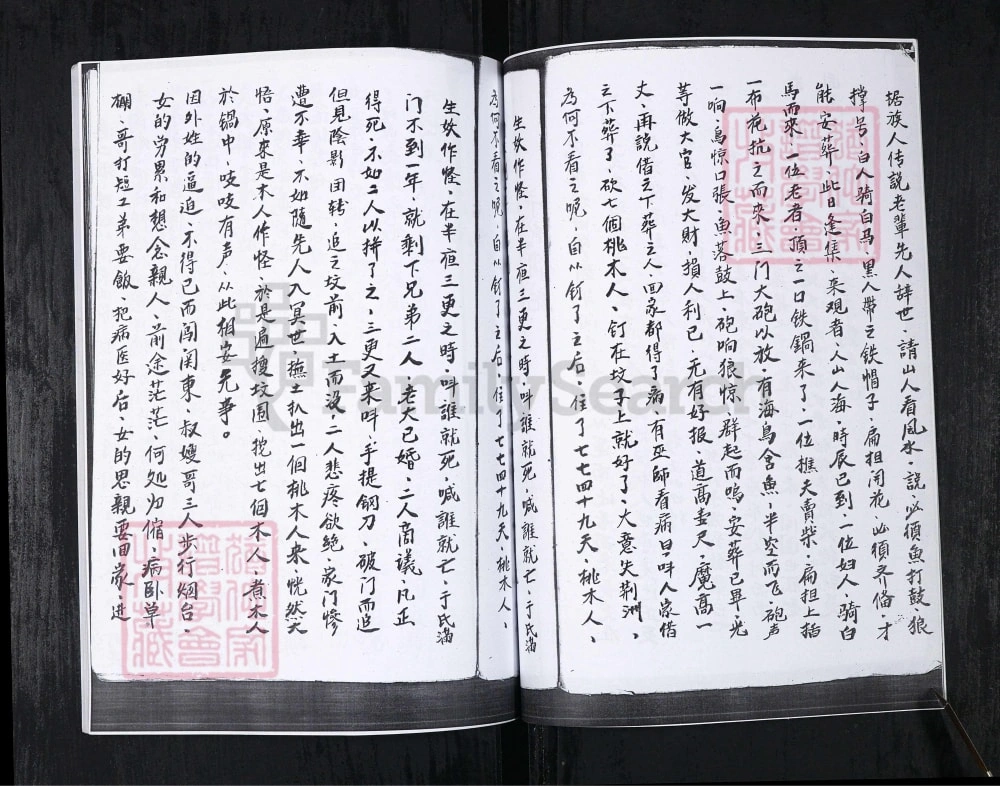 据族人传说老辈先人辞世、請山人看風水、说、必须魚打鼓、狼
撑号、白人骑白马、黑人带之铁帽子、扁担開花、必须齐俻、才
能安葬、此日逢集、来观者、人山人海、時辰已到、一位妇人、骑白
馬而来、一位老者、顶之一口铁鍋来了、一位樵夫賣柴、扁担上插
一布花抗之而来、三门大砲以放、有海鸟含魚、半空而飞、砲声
一响、鸟惊口張、魚落鼓上、砲响狼惊、群起而鸣、安葬已畢、光
等做大官、发大財、損人利已、无有好报、道高壹尺、魔高一
丈、再説借之下葬之人回家都得了病、有巫師看病曰、叫人家借
之下葬了、砍七個桃木人、钉在坟子上就好了、大意失荆洲、
為何不看之呢、自从钉了之后、住了七七四十九天、桃木人、
生妖作怪、在半夜三更之時、叫誰就死、喊誰就亡、于氏滿
為何不看之呢、自从钉了之后、住了七七四十九天、桃木人、
生妖作怪、在半夜三更之時、叫誰就死、喊誰就亡、于氏滿
门不到一年、就剩下兄弟二人、老大已婚、二人商議、凡正
得死、不如二人以拼了之、三更又来叫、手提钢刀、破门而追
但見陰影、团转、追之坟前、入土而没、二人悲疼欲絶、家门惨
遭不幸、不如随先人入冥世、撫土扒出一個桃木人来、恍然大
悟、原来是木人作怪、於是遍搜坟圍、挖出七個木人、煮木人
於鍋中、吱吱有声、从此相安无事。
因外姓的逼迫、不得已而闯関東、叔嫂哥三人步行烟台、
女的劳累和想念親人、前途茫茫、何処归缩、病卧草
棚、哥打短工弟要飯、把病医好后、女的思親要回家、进
FamilySearch